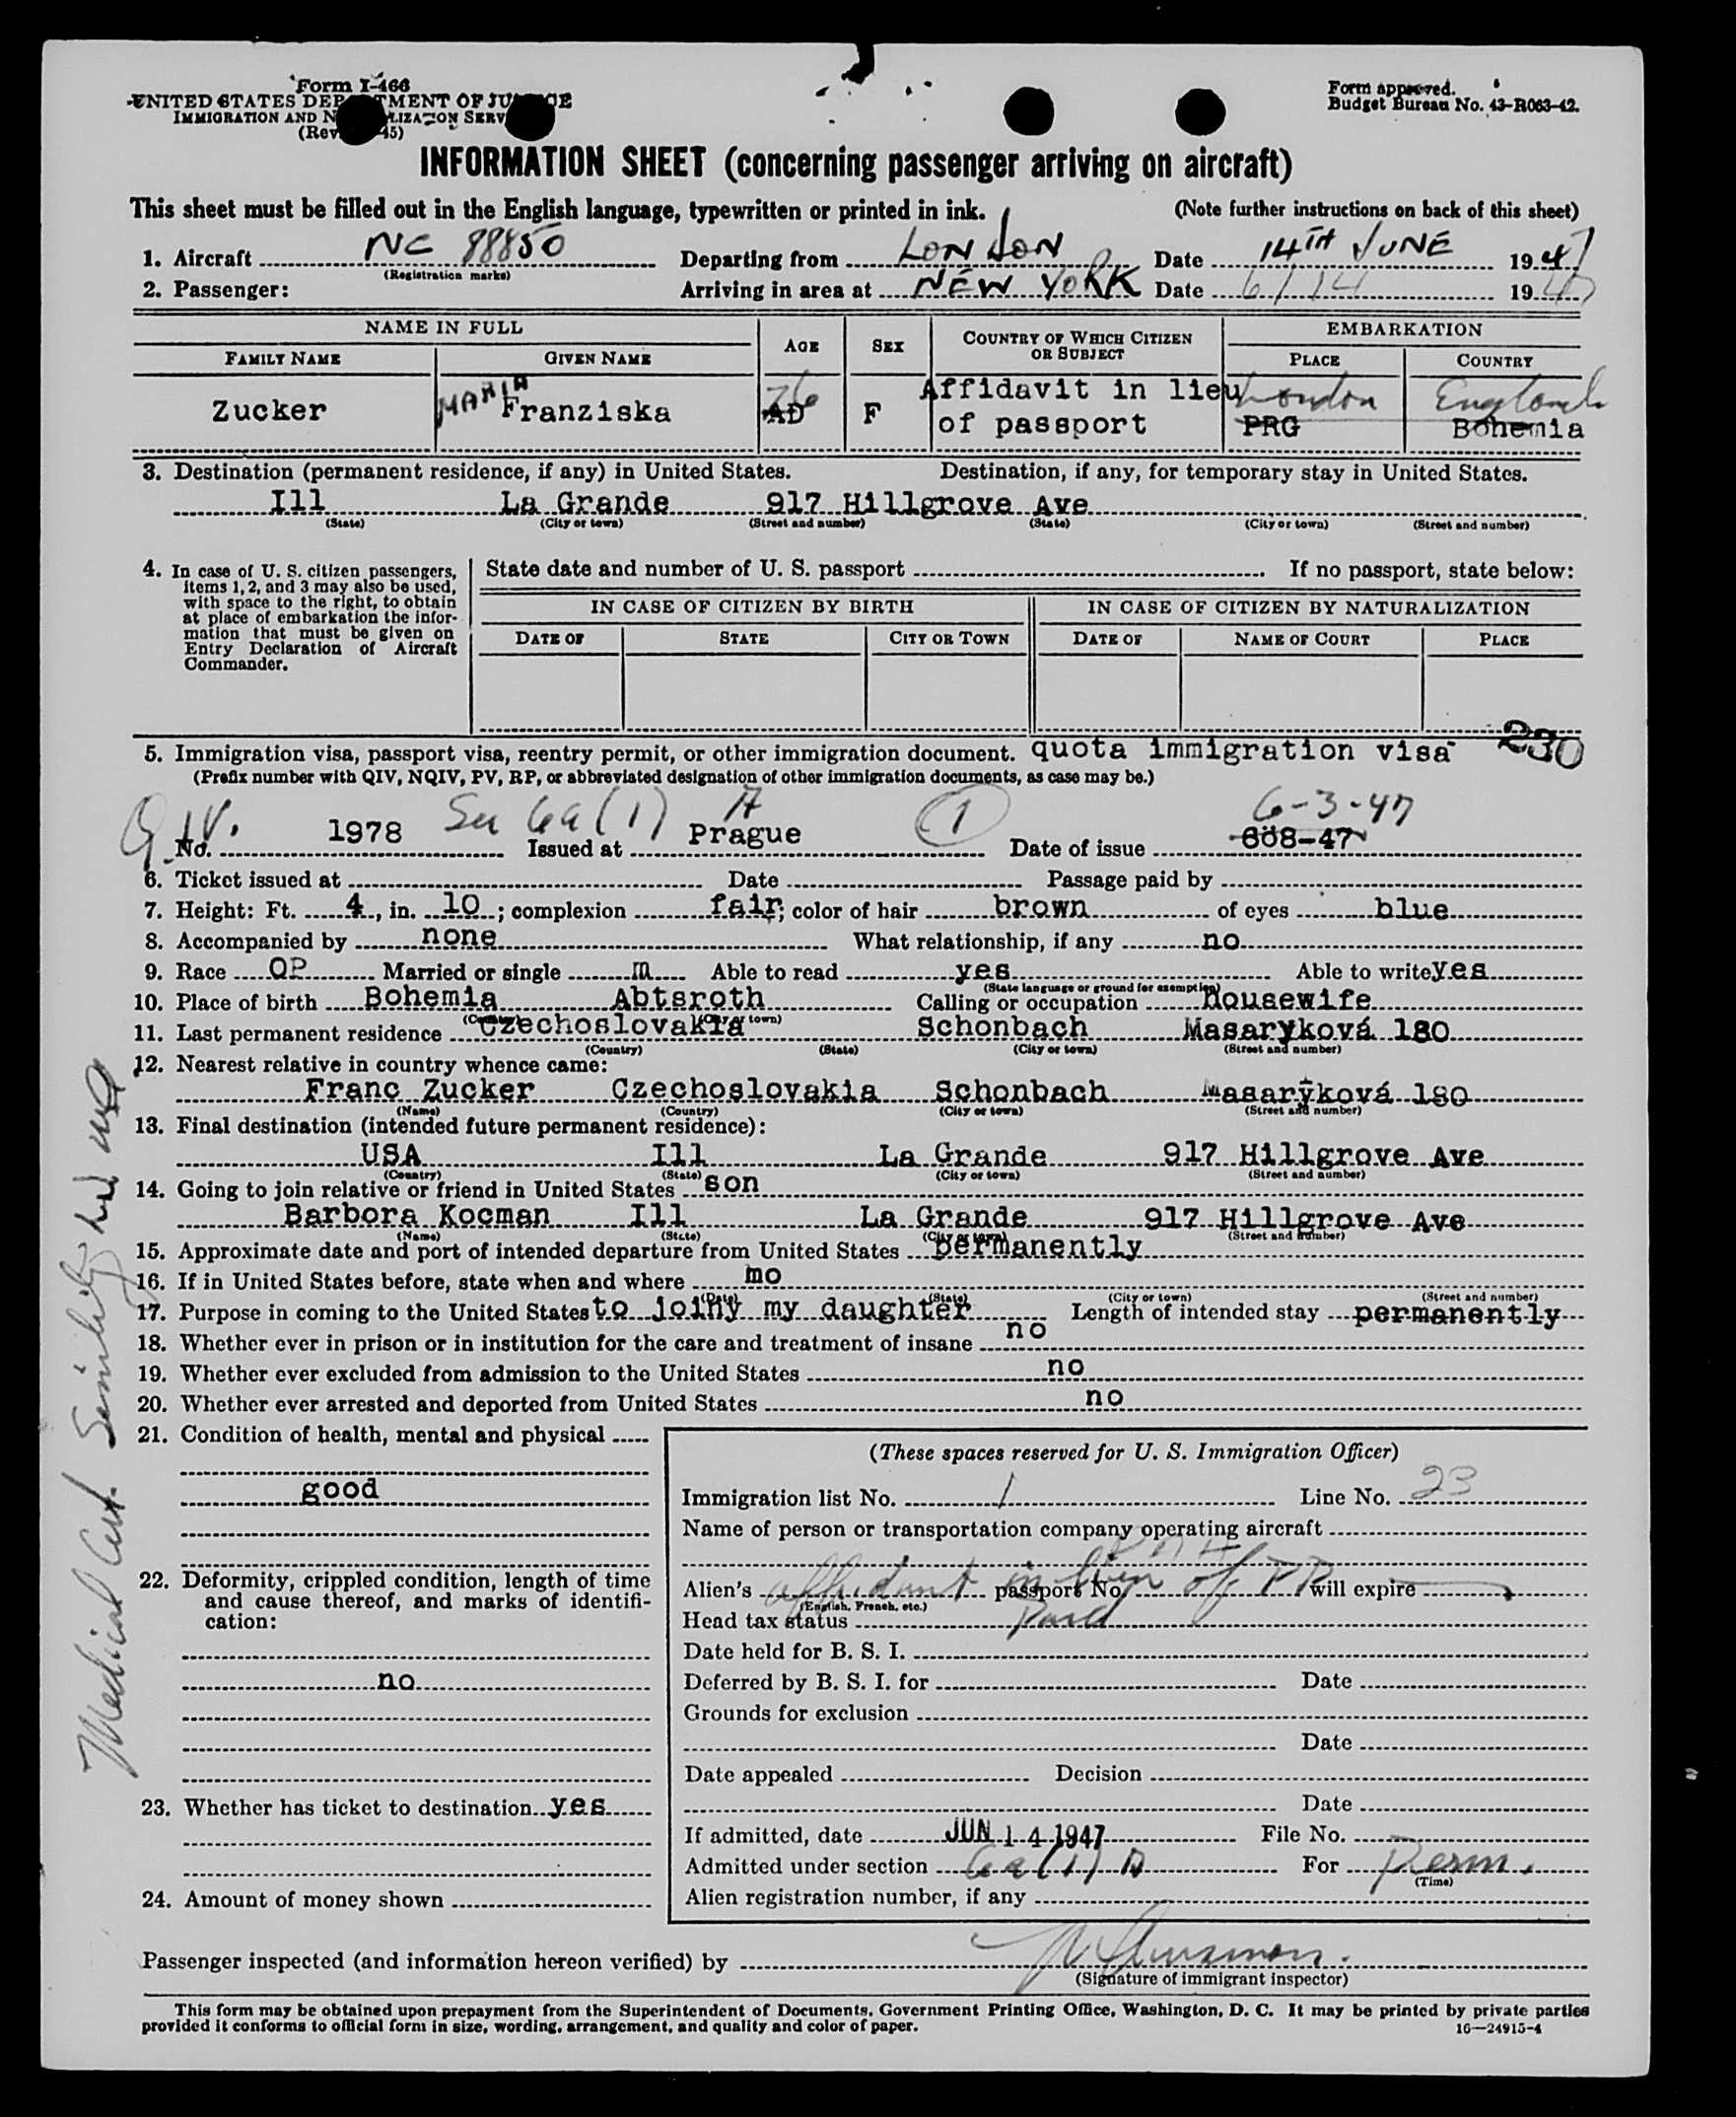 Form I-466
UNITED STATES DEP TMENT OF JU CE
IMMIGRATION AND N LIZATION SERV
(Rev. 45)
Form approved.
Budget Bureau No. 43-R063-42.
INFORMATION SHEET (concerning passenger arriving on aircraft)
This sheet must be filled out in the English language, typewritten or printed in ink. (Note further instructions on back of this sheet)
1. Aircraft NC 88850 Departing from LONDON Date 14TH JUNE 1947
(Registration marks)
2. Passenger: Arriving in area at NEW YORK Date 6/14 1947
NAME IN FULL AGE SEX COUNTRY OF WHICH CITIZEN OR SUBJECT EMBARKATION
FAMILY NAME GIVEN NAME PLACE COUNTRY
Zucker MARIA Franziska 76 AD F Affidavit in lieu London England
of passport PRG Bohemia
3. Destination (permanent residence, if any) in United States. Destination, if any, for temporary stay in United States.
Ill La Grande 917 Hillgrove Ave
(State) (City or town) (Street and number) (State) (City or town) (Street and number)
4. In case of U. S. citizen passengers,
items 1, 2, and 3 may also be used,
with space to the right, to obtain
at place of embarkation the infor-
mation that must be given on
Entry Declaration of Aircraft
Commander.
State date and number of U. S. passport . If no passport, state below:
IN CASE OF CITIZEN BY BIRTH IN CASE OF CITIZEN BY NATURALIZATION
DATE OF STATE CITY OR TOWN DATE OF NAME OF COURT PLACE
5. Immigration visa, passport visa, reentry permit, or other immigration document. quota immigration visa 230
(Prefix number with QIV, NQIV, PV, RP, or abbreviated designation of other immigration documents, as case may be.)
QIV. Sec 6a(1) A 1 6-3-47
No. 1978 Issued at Prague Date of issue 608-47
6. Ticket issued at Date Passage paid by
7. Height: Ft. 4, in. 10; complexion fair; color of hair brown of eyes blue
8. Accompanied by none What relationship, if any no
9. Race OP Married or single m Able to read yes Able to write yes
(State language or ground for exemption)
10. Place of birth Bohemia Abtsroth Calling or occupation housewife
(Country) (City or town)
11. Last permanent residence Czechoslovakia Schonbach Masaryková 180
(Country) (State) (City or town) (Street and number)
12. Nearest relative in country whence came:
Franc Zucker Czechoslovakia Schonbach Masaryková 180
(Name) (Country) (City or town) (Street and number)
13. Final destination (intended future permanent residence):
USA Ill La Grande 917 Hillgrove Ave
(Country) (State) (City or town) (Street and number)
14. Going to join relative or friend in United States son
Barbora Kocman Ill La Grande 917 Hillgrove Ave
(Name) (State) (City or town) (Street and number)
15. Approximate date and port of intended departure from United States permanently
16. If in United States before, state when and where mo
(Date) (State) (City or town) (Street and number)
17. Purpose in coming to the United States to joiny my daughter Length of intended stay permanently
18. Whether ever in prison or in institution for the care and treatment of insane no
19. Whether ever excluded from admission to the United States no
20. Whether ever arrested and deported from United States no
21. Condition of health, mental and physical
good
22. Deformity, crippled condition, length of time
and cause thereof, and marks of identifi-
cation:
no
23. Whether has ticket to destination yes
24. Amount of money shown
(These spaces reserved for U. S. Immigration Officer)
Immigration list No. 1 Line No. 23
Name of person or transportation company operating aircraft
Alien's affidavit in lieu of PP passport No. will expire
(English, French, etc.)
Head tax status Paid
Date held for B. S. I.
Deferred by B. S. I. for Date
Grounds for exclusion
Date
Date appealed Decision
Date
If admitted, date JUN 14 1947 File No.
Admitted under section 6a(1) A For Perm.
(Time)
Alien registration number, if any
Passenger inspected (and information hereon verified) by
(Signature of immigrant inspector)
This form may be obtained upon prepayment from the Superintendent of Documents, Government Printing Office, Washington, D. C. It may be printed by private parties
provided it conforms to official form in size, wording, arrangement, and quality and color of paper. 16—24915-4
Medical Cert. Senility